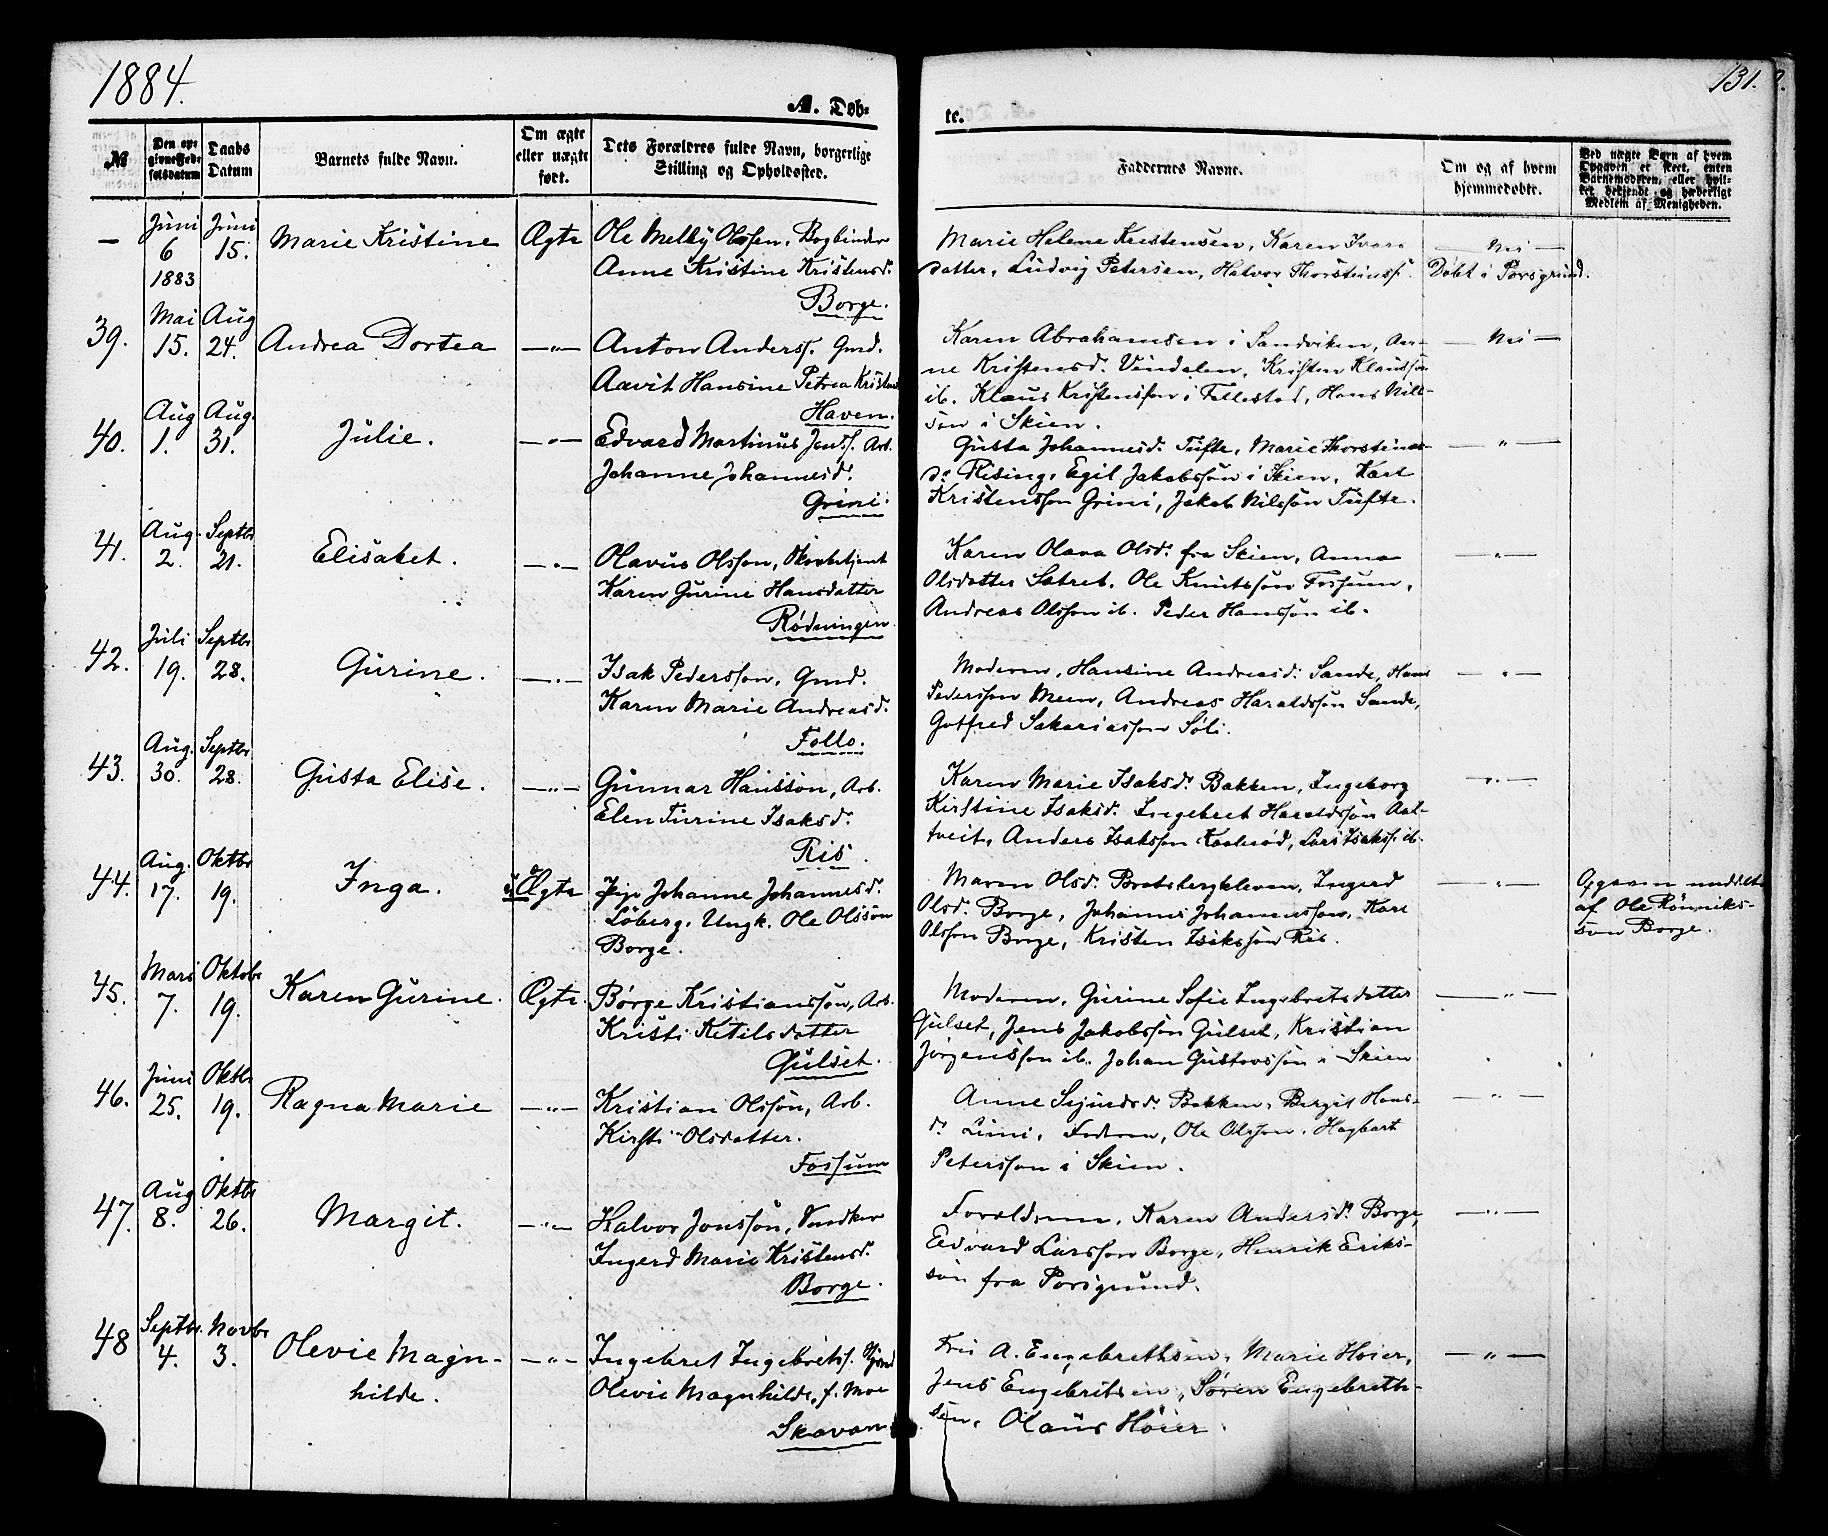 1884.
131.
A. Døb-
te.
№
Den op-
givne Fød-
selsdatum
Daabs
Datum
Barnets fulde Navn.
Om ægte
eller uægte
født.
Dets Forældres fulde Navn, borgerlige
Stilling og Opholdssted.
Faddernes Navne.
Om og af hvem
hjemmedøbte.
Ved uægte Børn af hvem
Opgaven er skeet, enten
Barnemoderen, eller hvil-
ket bekjendt og hæderligt
Medlem af Menigheden.
— Juni 6 1883 Juni 15. Marie Kristine Ægte Ole Melby Olssen, Bogbinder
Anne Kristine Kristensd.
Borge.
Marie Helene Kristensen, Karen Ivars
datter, Ludvig Petersen, Halvor Thorsteinss.
— Nei —
Døbt i Porsgrund.
39. Mai 15. Aug 24. Andrea Dortea —„— Anton Anderss. Gmd.
Aavit Hansine Petrea Kristens
Haven.
Karen Abrahamsen i Sandviken, An-
ne Kristensd. Vendalen, Kristen Klausson
ib. Klaus Kristensson i Follestad, Hans Nils-
søn i Skien.
— Nei —
40. Aug 1. Aug. 31. Julie. —„— Edvard Martinus Jenss. Arb.
Johanne Johannesd.
Grini.
Gusta Johannesd. Tufte, Marie Thorstens-
d. Rising, Egil Jakobssøn i Skien, Karl
Kristensson Grini, Jakob Nilssøn Tufte.
—„—
41. Aug. 2. Septbr 21. Elisabet. —„— Olavus Olsson, Skovbetjent
Karen Gurine Hansdatter
Rødningen
Karen Olava Olsd. fra Skien, Anna
Olsdatter Sætret, Ole Knutssøn Fossum,
Andreas Olsson ib. Peder Hanssøn ib.
—„—
42. Juli 19. Septbr 28. Gurine. —„— Isak Pedersson, Gmd.
Karen Marie Andreasd.
Follo.
Moderen, Hansine Andreasd. Sande, Hans
Pedersson Meen, Andreas Haraldssøn Sande,
Gotfred Sakariasson Søli.
—„—
43. Aug. 30. Septbr 28. Gusta Elise. —„— Gunnar Hanssøn, Arb.
Elen Turine Isaksd.
Ris.
Karen Marie Isaksd. Bakken, Ingeborg
Kirstine Isaksd. Ingebret Haraldssøn Aal-
tveit, Anders Isaksson Kaalrød, Lars Isakss. ib.
—„—
44. Aug. 17. Oktbr 19. Inga. uÆgte Pige Johanne Johannesd.
Løberg, Ungk. Ole Olssøn
Borge.
Maren Olsd. Bratsbergkleven, Ingerd
Olsd. Borge, Johannes Johannesson, Karl
Olsson Borge, Kristen Isakssøn Ris.
—„—
Opgaven meddelt
af Ole Rønniks-
søn Borge.
45. Mars 7. Oktobr 19. Karen Gurine. Ægte. Børge Kristianssøn, Arb.
Kristi Ketilsdatter
Gulset.
Moderen, Gurine Sofie Ingebretsdatter
Gulset, Jens Jakobssøn Gulset, Kristian
Jørgensson ib. Johan Gustavssøn i Skien
—„—
46. Juni 25. Oktbr 19. Ragna Marie —„— Kristian Olssøn, Arb.
Kirsti Olsdatter.
Fossum
Anne Sigurdsd. Bakken, Bergit Hans-
d. Limi, Faderen, Ole Olsson, Hagbart
Petersson i Skien.
—„—
47. Aug 8. Oktbr 26. Margit. —„— Halvor Jonssøn,
Ingerd Marie Kristensd.
Borge.
Forældrene, Karen Andersd. Borge,
Edvard Larsson Borge, Henrik Eriks-
søn fra Porsgrund.
—„—
48 Septbr. 4. Novbr 3. Olevie Magn-
hilde. —„— Ingebret Ingebretss.
Olevie Magnhilde, f. Moe
Skavan
Fru A. Engebrethsen, Marie Høier,
Jens Engebretsen, Søren Engebreth-
sen, Olaus Høier.
—„—